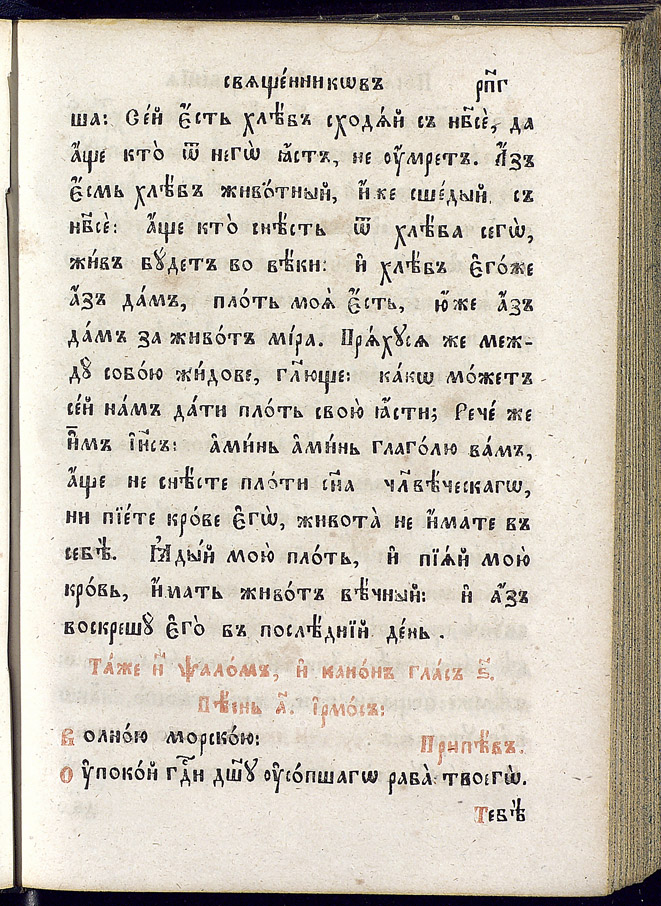 свѧще́нникѡвъ рп҃г
ша: Се́й є҆́сть хлѣ́бъ сходѧ́й съ нб҃сѐ, да
а҆́ще кто̀ ѿ негѡ̀ ꙗ҆́стъ, не оу҆́мретъ. А҆́зъ
є҆́смь хлѣ́бъ живо́тный, и҆́же сше́дый съ
нб҃сѐ: а҆́ще кто̀ снѣ́сть ѿ хлѣ́ба сегѡ̀,
жи́въ бꙋ́детъ во вѣ́ки: и҆ хлѣ́бъ є҆го́же
а҆́зъ да́мъ, пло́ть моѧ̀ є҆́сть, ю҆́же а҆́зъ
да́мъ за живо́тъ мі́ра. Прѧ́хꙋсѧ же меж-
дꙋ̀ собо́ю жи́дове, гл҃юще: ка́кѡ мо́жетъ
се́й на́мъ да́ти пло́ть свою̀ ꙗ҆́сти; Рече́ же
и҆̀мъ і҆и҃съ: а҆ми́нь а҆ми́нь глаго́лю ва́мъ,
а҆́ще не снѣ́сте пло́ти сн҃а чл҃вѣ́ческагѡ,
ни пїе́те кро́ве є҆гѡ̀, живота̀ не и҆́мате въ
себѣ̀. Ꙗ҆ды́й мою̀ пло́ть, и҆ пїѧ́й мою̀
кро́вь, и҆́мать живо́тъ вѣ́чный: и҆ а҆́зъ
воскрешꙋ̀ є҆го̀ въ послѣ́днїй де́нь.
Та́же н҃ ѱало́мъ, и҆ кано́нъ гла́съ ѕ҃.
Пѣ́снь а҃. І҆рмо́съ:
Волно́ю морско́ю: Припѣ́въ.
Оу҆поко́й гдⷭ҇и дш҃ꙋ оу҆со́пшагѡ раба̀ твоегѡ̀.
Тебѣ̀